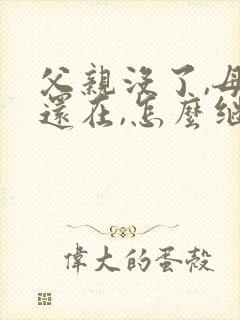 父親沒了,母
還在,怎麼繼
偉大的蛋殼